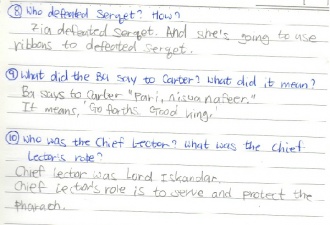 ⑧ Who defeated Serqet? How?
Zia defeated Serqet. And she's going to use
ribbons to defeated Serqet.
⑨ What did the Ba say to Carter? What did it mean?
Ba says to Carter "Pari, niswa nafeer."
It means, "Go forth, Good king."
⑩ Who was the Chief Lector? What was the Chief
Lector's role?
Chief Lector was Lord Iskandar.
Chief Lector's role is to serve and protect the
Pharaoh.